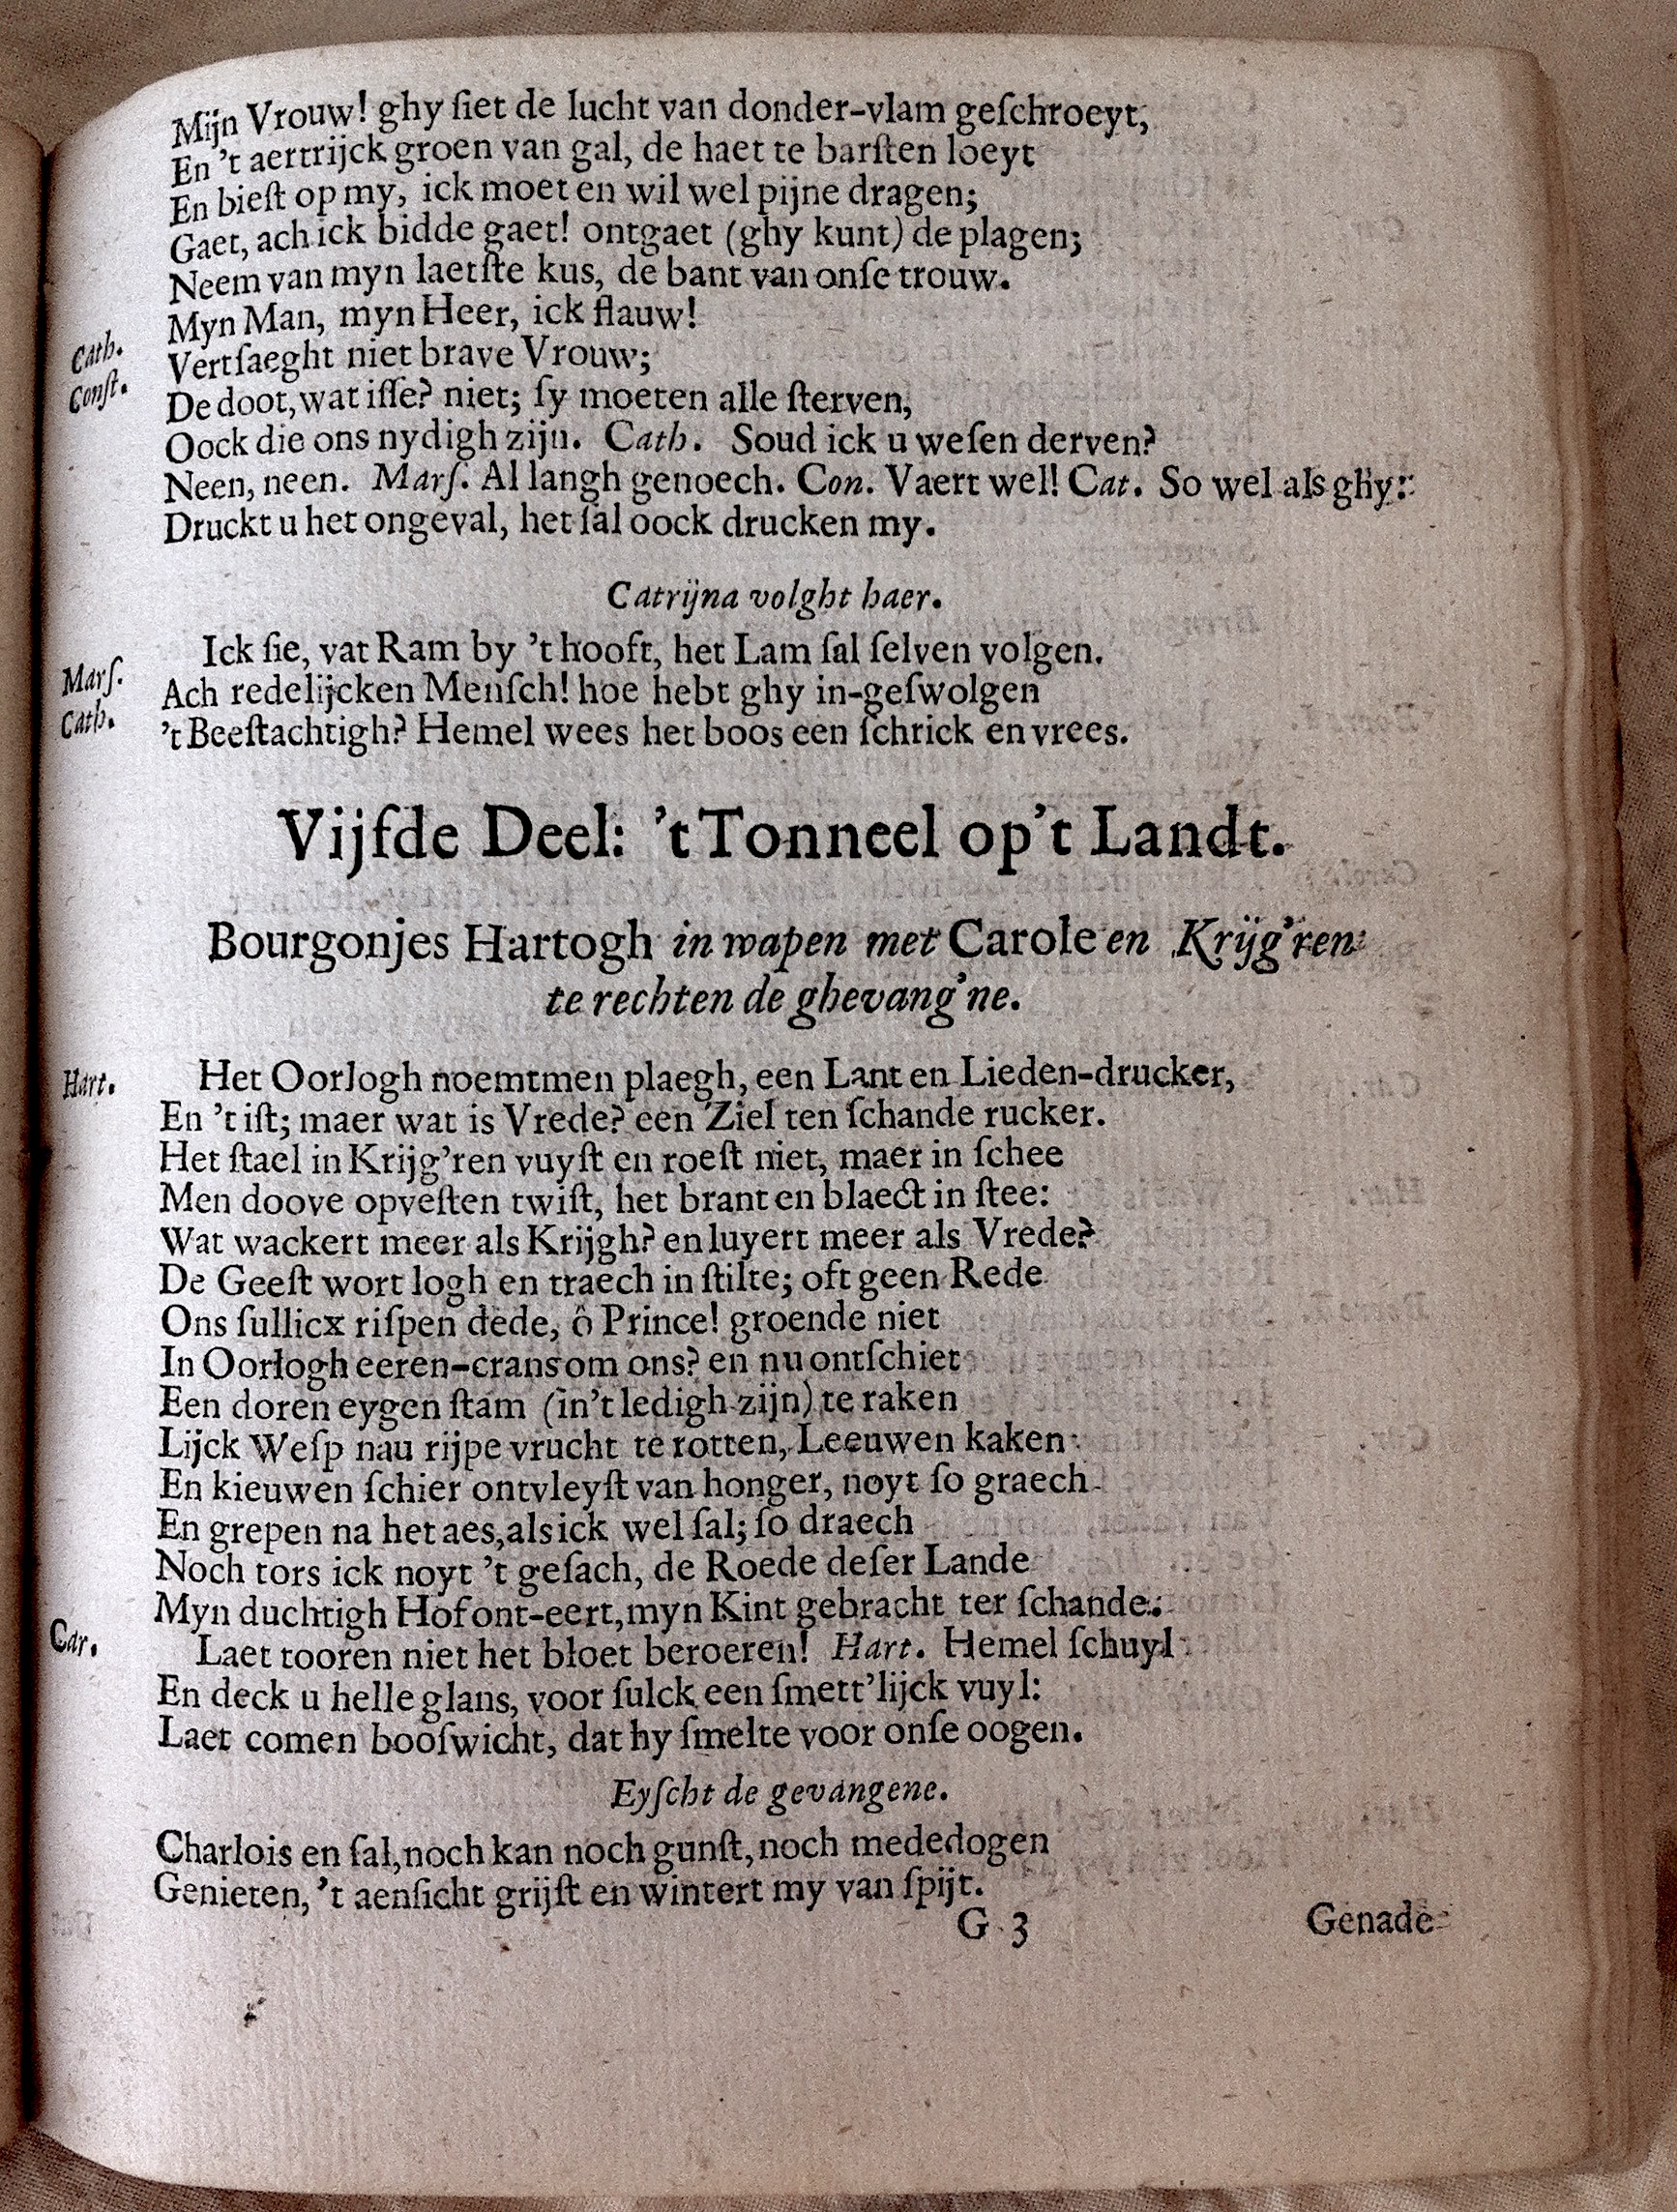 Mijn Vrouw! ghy ſiet de lucht van donder-vlam geſchroeyt,
En 't aertrijck groen van gal, de haet te barſten loeyt
En bieſt op my, ick moet en wil wel pijne dragen;
Gaet, ach ick bidde gaet! ontgaet (ghy kunt) de plagen;
Neem van myn laetſte kus, de bant van onſe trouw.
Cath. Myn Man, myn Heer, ick flauw!
Conſt. Vertſaeght niet brave Vrouw;
De doot, wat iſſe? niet; ſy moeten alle ſterven,
Oock die ons nydigh zijn. Cath. Soud ick u weſen derven?
Neen, neen. Marſ. Al langh genoech. Con. Vaert wel! Cat. So wel als ghy:
Druckt u het ongeval, het ſal oock drucken my.
Catrijna volght haer.
Marſ. Ick ſie, vat Ram by 't hooft, het Lam ſal ſelven volgen.
Cath. Ach redelijcken Menſch! hoe hebt ghy in-geſwolgen
't Beeſtachtigh? Hemel wees het boos een ſchrick en vrees.
Vijfde Deel: 't Tonneel op 't Landt.
Bourgonjes Hartogh in wapen met Carole en Krijg'ren
te rechten de ghevang'ne.
Hart. Het Oorlogh noemtmen plaegh, een Lant en Lieden-drucker,
En 't iſt; maer wat is Vrede? een Ziel ten ſchande rucker.
Het ſtael in Krijg'ren vuyſt en roeſt niet, maer in ſchee
Men doove opveſten twiſt, het brant en blaect in ſtee:
Wat wackert meer als Krijgh? en luyert meer als Vrede?
De Geeſt wort logh en traech in ſtilte; oft geen Rede
Ons ſullicx riſpen dede, ô Prince! groende niet
In Oorlogh eeren-crans om ons? en nu ontſchiet
Een doren eygen ſtam (in 't ledigh zijn) te raken
Lijck Weſp nau rijpe vrucht te rotten, Leeuwen kaken
En kieuwen ſchier ontvleyſt van honger, noyt ſo graech
En grepen na het aes, als ick wel ſal; ſo draech
Noch tors ick noyt 't geſach, de Roede deſer Lande
Myn duchtigh Hof ont-eert, myn Kint gebracht ter ſchande.
Car. Laet tooren niet het bloet beroeren! Hart. Hemel ſchuyl
En deck u helle glans, voor ſulck een ſmett'lijck vuyl:
Laet comen booſwicht, dat hy ſmelte voor onſe oogen.
Eyſcht de gevangene.
Charlois en ſal, noch kan noch gunſt, noch mededogen
Genieten, 't aenſicht grijſt en wintert my van ſpijt.
G 3 Genade